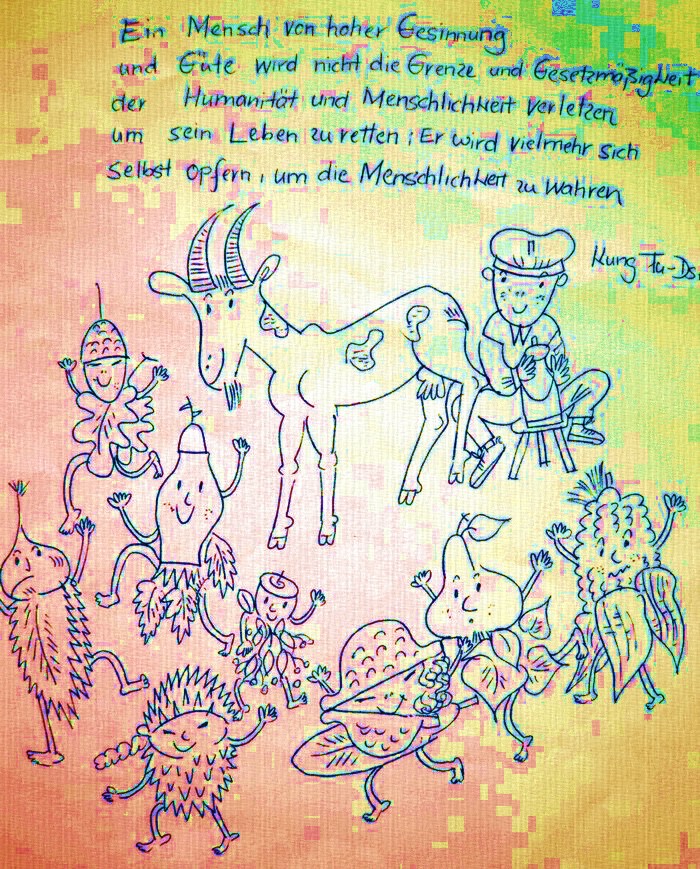 Ein Mensch von hoher Gesinnung
und Güte wird nicht die Grenze und Gesetzmäßigkeit
der Humanität und Menschlichkeit verletzen
um sein Leben zu retten; Er wird vielmehr sich
selbst opfern, um die Menschlichkeit zu wahren
Kung Fu-Ds